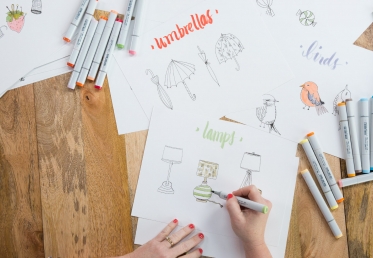 umbrellas
birds
lamps